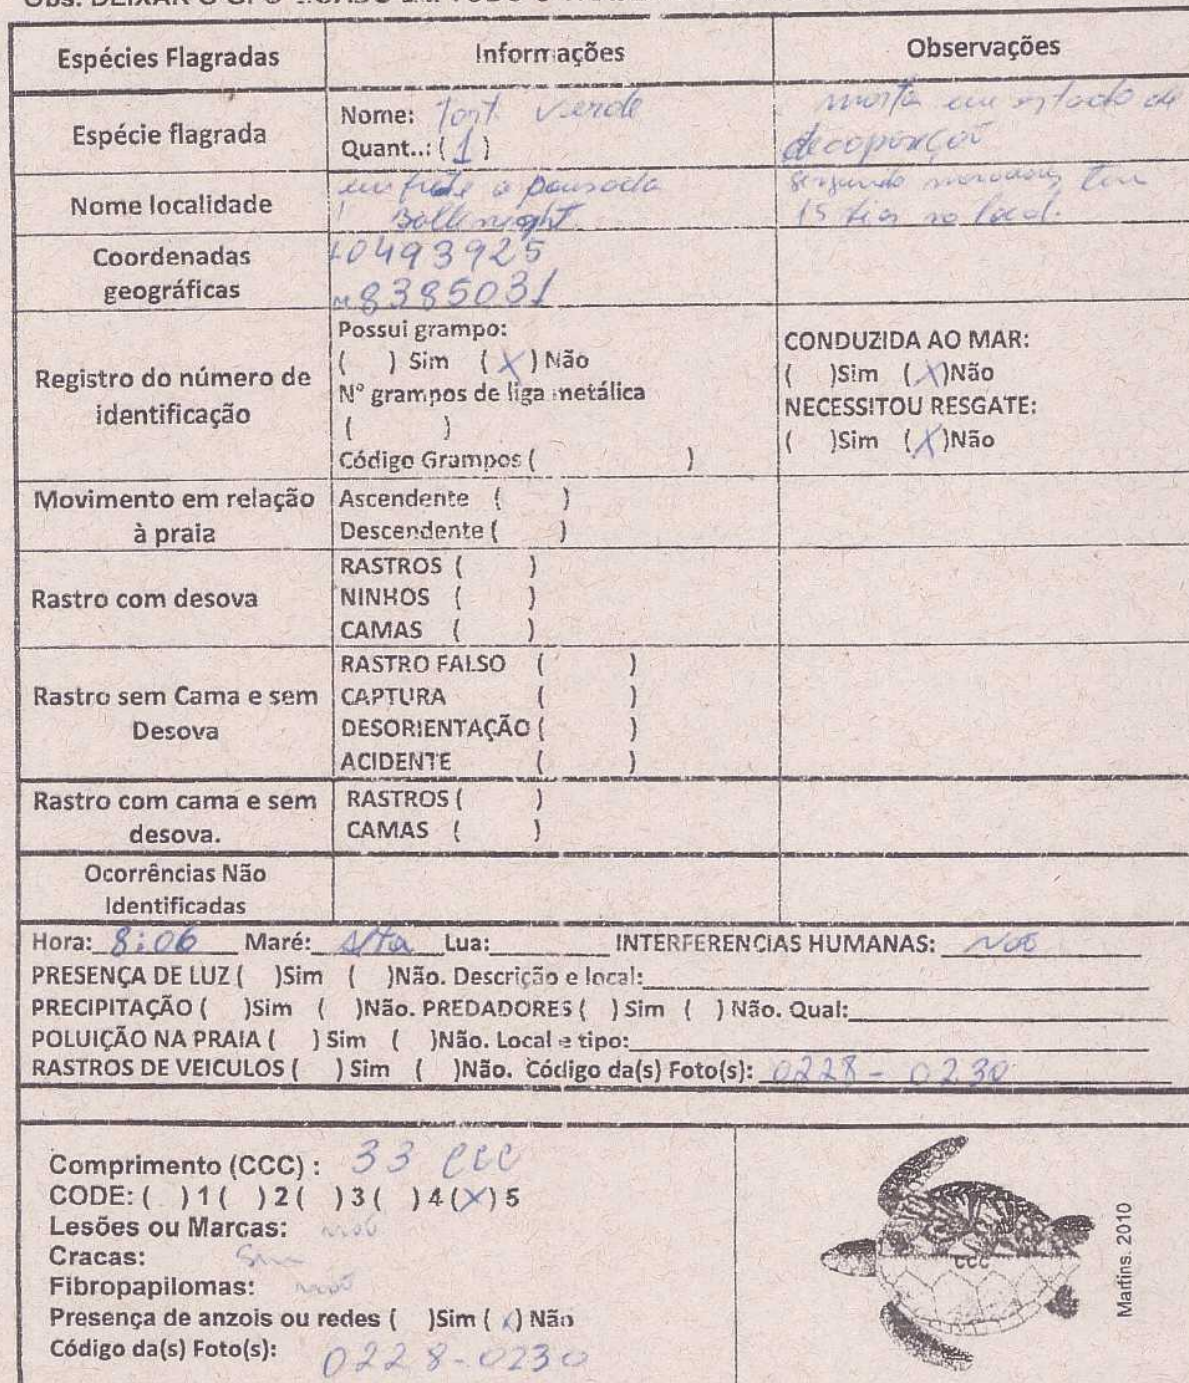 Espécies Flagradas Informações Observações
Espécie flagrada
Nome: Tart. Verde
Quant..: ( 1 )
morta em estado de
decoposiçoõ
Nome localidade
em frete a pousada
segundo moradores, tem
15 dias no local.
Coordenadas
geográficas
0493925
8385031
Registro do número de
identificação
Possui grampo:
( ) Sim ( X ) Não
N° grampos de liga metálica
( )
Código Grampos ( )
CONDUZIDA AO MAR:
( )Sim (X)Não
NECESSITOU RESGATE:
( )Sim (X)Não
Movimento em relação
à praia
Ascendente ( )
Descendente ( )
Rastro com desova
RASTROS ( )
NINHOS ( )
CAMAS ( )
Rastro sem Cama e sem
Desova
RASTRO FALSO ( )
CAPTURA ( )
DESORIENTAÇÃO ( )
ACIDENTE ( )
Rastro com cama e sem
desova.
RASTROS ( )
CAMAS ( )
Ocorrências Não
Identificadas
Hora: 8:06 Maré: Alta Lua: INTERFERENCIAS HUMANAS: Não
PRESENÇA DE LUZ ( )Sim ( )Não. Descrição e local:
PRECIPITAÇÃO ( )Sim ( )Não. PREDADORES ( ) Sim ( ) Não. Qual:
POLUIÇÃO NA PRAIA ( ) Sim ( )Não. Local e tipo:
RASTROS DE VEICULOS ( ) Sim ( )Não. Código da(s) Foto(s): 0228 - 0230
Comprimento (CCC) : 33 ccc
CODE: ( ) 1 ( ) 2 ( ) 3 ( ) 4 (X) 5
Lesões ou Marcas: não
Cracas: Sim
Fibropapilomas: não
Presença de anzois ou redes ( )Sim ( X ) Não
Código da(s) Foto(s): 0228-0230
CCC
Martins. 2010